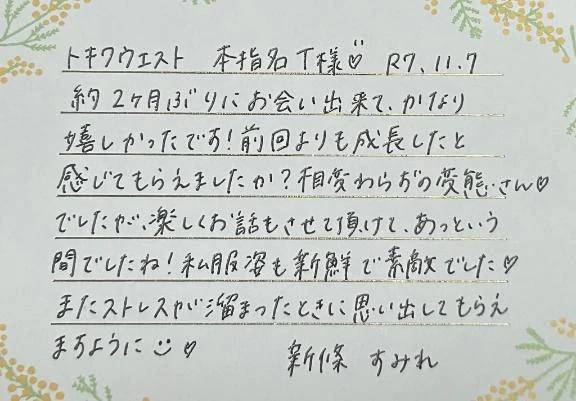 トキワウエスト 本指名T様♡ R7.11.7
約2ヶ月ぶりにお会い出来て、かなり
嬉しかったです!前回よりも成長したと
感じてもらえましたか?相変わらずの変態さん♡
でしたが、楽しくお話もさせて頂けて、あっという
間でしたね!私服姿も新鮮で素敵でした♡
またストレスが溜まったときに思い出してもらえ
ますように☺♡
新條 すみれ